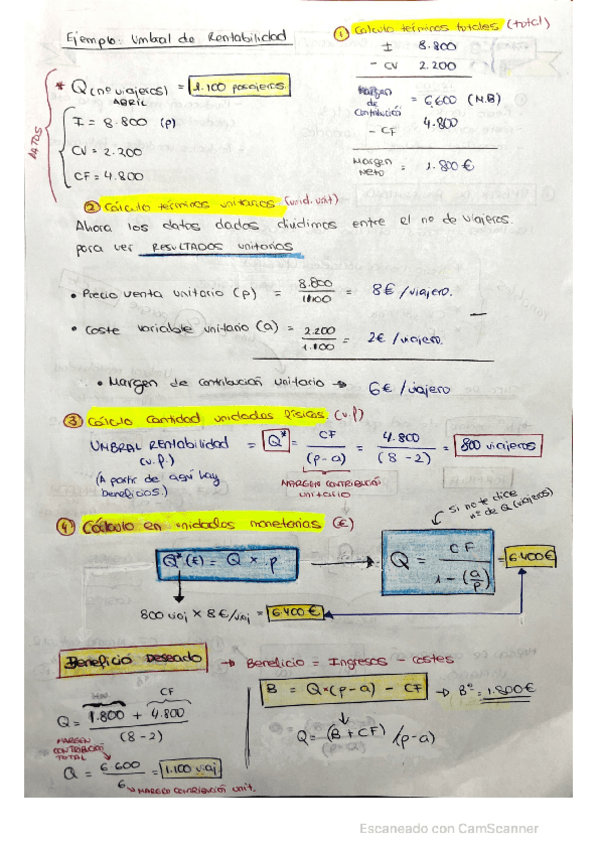 Ejemplo: Umbral de Rentabilidad
DATOS
* Q (nº viajeros) = 1.100 pasajeros.
ABRIL
I = 8.800 (p)
CV = 2.200
CF = 4.800
① Cálculo términos totales (total)
I 8.800
- CV 2.200
Margen de Contribución = 6,600 (M.B)
- CF 4.800
Margen Neto = 1.800 €
② Cálculo términos unitarios (unid. unit)
Ahora los datos dados dividimos entre el nº de viajeros.
para ver RESULTADOS unitarios
• Precio venta unitario (p) = 8.800 / 1.100 = 8€/viajero.
• Coste variable unitario (a) = 2.200 / 1.100 = 2€/viajero.
• Margen de contribución unitario → 6€/viajero
③ Cálculo cantidad unidades físicas. (u.f)
UMBRAL RENTABILIDAD = Q* = CF / (p-a) = 4.800 / (8-2) = 800 viajeros
(u.f.)
(A partir de aquí hay beneficios.)
MARGEN CONTRIBUCIÓN unitario
④ Cálculo en unidades monetarias (€)
si no te dice nº de Q (viajeros)
Q*(€) = Q × p → Q = CF / 1 - (a/p) = 6.400€
800 viaj × 8€/viaj = 6.400€
Beneficio Deseado → Beneficio = Ingresos - costes
CF
Q = 1.800 + 4.800 / (8-2)
MARGEN CONTRIBUCIÓN TOTAL
Q = 6.600 / 6 = 1.100 viaj
→ MARGEN CONTRIBUCIÓN unit.
B = Q*(p-a) - CF → Bº = 1.800€
Q = (B + CF) / (p-a)
Escaneado con CamScanner